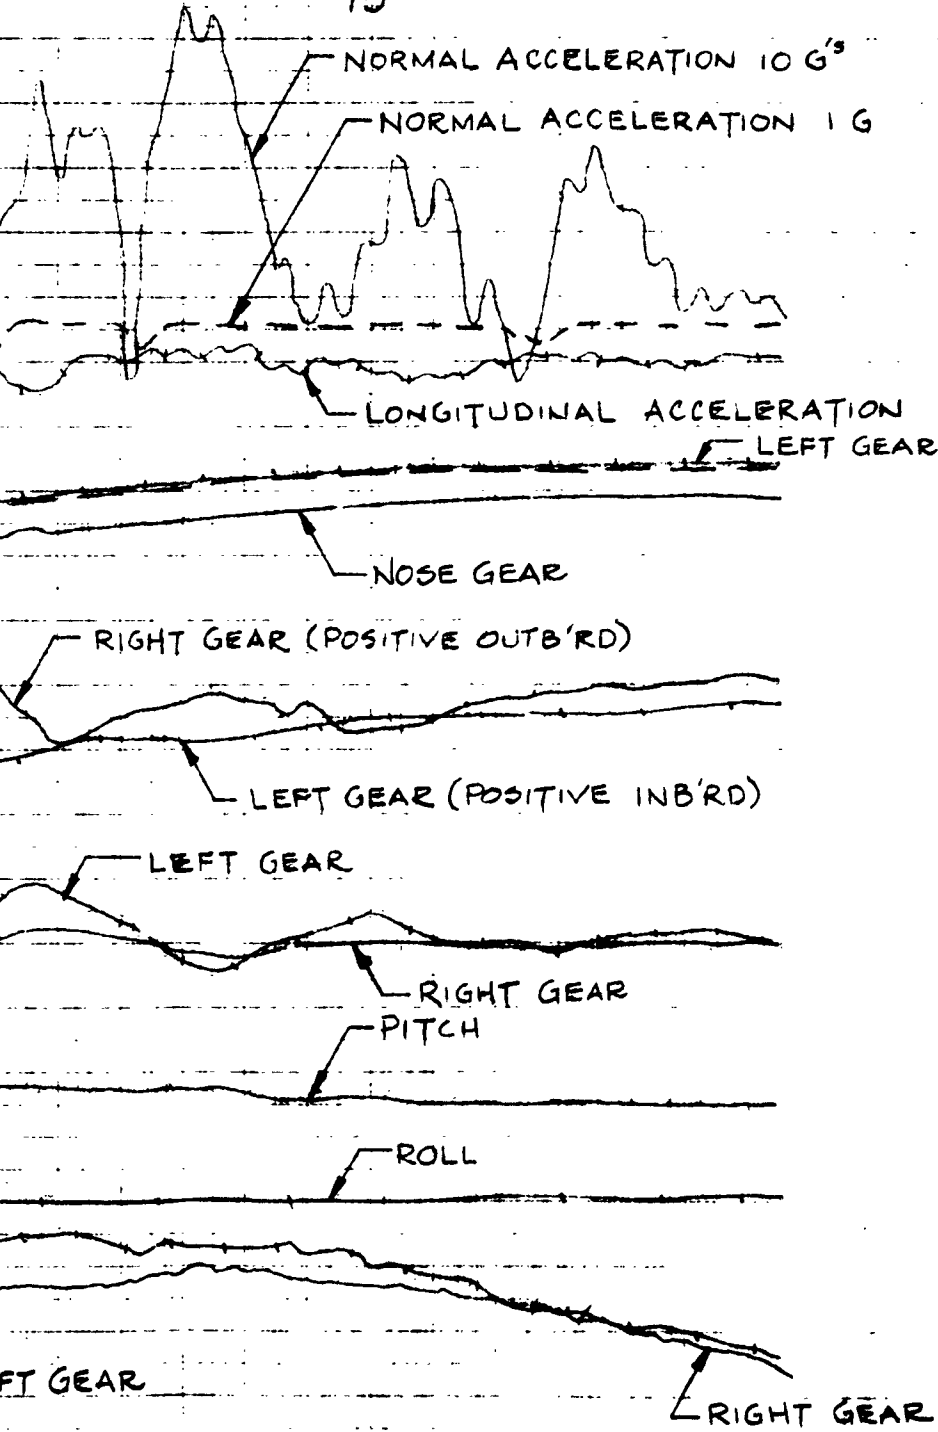 NORMAL ACCELERATION 10 G's
NORMAL ACCELERATION 1 G
LONGITUDINAL ACCELERATION
LEFT GEAR
NOSE GEAR
RIGHT GEAR (POSITIVE OUTB'RD)
LEFT GEAR (POSITIVE INB'RD)
LEFT GEAR
RIGHT GEAR
PITCH
ROLL
FT GEAR
RIGHT GEAR